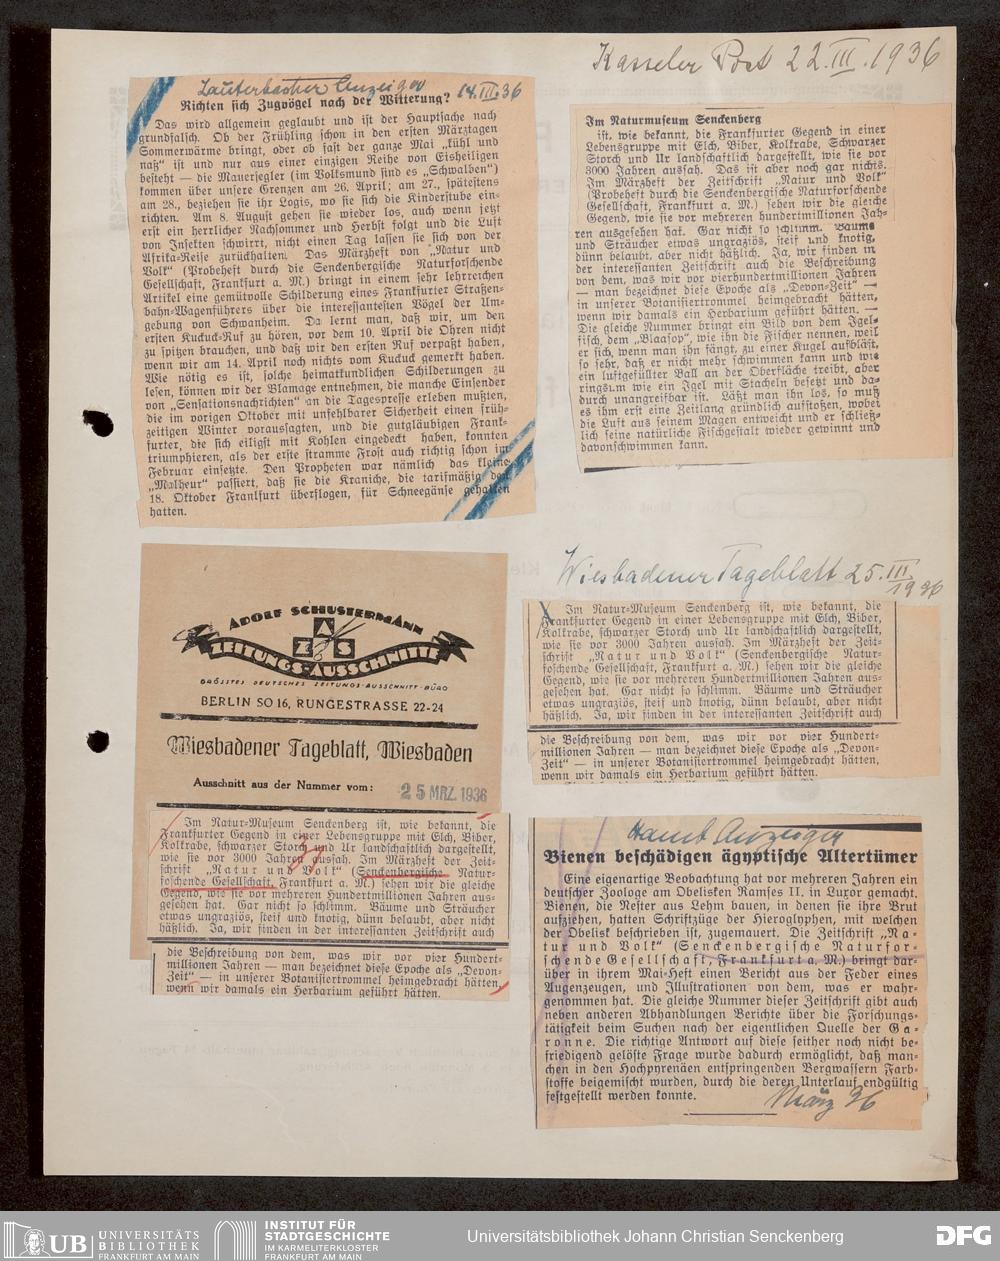 Lauterbacher Anzeiger 14.III.36
Richten sich Zugvögel nach der Witterung?
Das wird allgemein geglaubt und ist der Hauptsache nach
grundfalsch. Ob der Frühling schon in den ersten Märztagen
Sommerwärme bringt, oder ob fast der ganze Mai „kühl und
naß“ ist und nur aus einer einzigen Reihe von Eisheiligen
besteht — die Mauersegler (im Volksmund sind es „Schwalben“)
kommen über unsere Grenzen am 26. April; am 27., spätestens
am 28., beziehen sie ihr Logis, wo sie sich die Kinderstube ein-
richten. Am 8. August gehen sie wieder los, auch wenn jetzt
erst ein herrlicher Nachsommer und Herbst folgt und die Luft
von Insekten schwirrt, nicht einen Tag lassen sie sich von der
Afrika-Reise zurückhalten. Das Märzheft von „Natur und
Volk“ (Probeheft durch die Senckenbergische Naturforschende
Gesellschaft, Frankfurt a. M.) bringt in einem sehr lehrreichen
Artikel eine gemütvolle Schilderung eines Frankfurter Straßen-
bahn-Wagenführers über die interessantesten Vögel der Um-
gebung von Schwanheim. Da lernt man, daß wir, um den
ersten Kuckuck-Ruf zu hören, vor dem 10. April die Ohren nicht
zu spitzen brauchen, und daß wir den ersten Ruf verpaßt haben,
wenn wir am 14. April noch nichts vom Kuckuck gemerkt haben.
Wie nötig es ist, solche heimatkundlichen Schilderungen zu
lesen, können wir der Blamage entnehmen, die manche Einsender
von „Sensationsnachrichten“ an die Tagespresse erleben mußten,
die im vorigen Oktober mit unfehlbarer Sicherheit einen früh-
zeitigen Winter voraussagten, und die gutgläubigen Frank-
furter, die sich eiligst mit Kohlen eingedeckt haben, konnten
triumphieren, als der erste stramme Frost auch richtig schon im
Februar einsetzte. Den Propheten war nämlich das kleine
„Malheur“ passiert, daß sie die Kraniche, die tarifmäßig den
18. Oktober Frankfurt überflogen, für Schneegänse gehalten
hatten.
Kasseler Post 22.III.1936
Im Naturmuseum Senckenberg
ist, wie bekannt, die Frankfurter Gegend in einer
Lebensgruppe mit Elch, Biber, Kolkrabe, Schwarzer
Storch und Ur landschaftlich dargestellt, wie sie vor
3000 Jahren aussah. Das ist aber noch gar nichts.
Im Märzheft der Zeitschrift „Natur und Volk“
(Probeheft durch die Senckenbergische Naturforschende
Gesellschaft, Frankfurt a. M.) sehen wir die gleiche
Gegend, wie sie vor mehreren hundertmillionen Jah-
ren ausgesehen hat. Gar nicht so schlimm. Bäume
und Sträucher etwas ungraziös, steif und knotig,
dünn belaubt, aber nicht häßlich. Ja, wir finden in
der interessanten Zeitschrift auch die Beschreibung
von dem, was wir vor vierhundertmillionen Jahren
— man bezeichnet diese Epoche als „Devon-Zeit“ —
in unserer Botanisiertrommel heimgebracht hätten,
wenn wir damals ein Herbarium geführt hätten. —
Die gleiche Nummer bringt ein Bild von dem Igel-
fisch, dem „Blaasop“, wie ihn die Fischer nennen, weil
er sich, wenn man ihn fängt, zu einer Kugel aufbläst,
so sehr, daß er nicht mehr schwimmen kann und wie
ein luftgefüllter Ball an der Oberfläche treibt, aber
ringsum wie ein Igel mit Stacheln besetzt und da-
durch unangreifbar ist. Läßt man ihn los, so muß
es ihm erst eine Zeitlang gründlich aufstoßen, wobei
die Luft aus seinem Magen entweicht und er schließ-
lich seine natürliche Fischgestalt wieder gewinnt und
davonschwimmen kann.
ADOLF SCHUSTERMANN
A
Z S
ZEITUNGS-AUSSCHNITTE
GRÖSSTES DEUTSCHES ZEITUNGS-AUSSCHNITT-BÜRO
BERLIN SO 16, RUNGESTRASSE 22-24
Wiesbadener Tageblatt, Wiesbaden
Ausschnitt aus der Nummer vom:
25 MRZ. 1936
Im Natur-Museum Senckenberg ist, wie bekannt, die
Frankfurter Gegend in einer Lebensgruppe mit Elch, Biber,
Kolkrabe, schwarzer Storch und Ur landschaftlich dargestellt,
wie sie vor 3000 Jahren aussah. Im Märzheft der Zeit-
schrift „Natur und Volk“ (Senckenbergische Natur-
foschende Gesellschaft, Frankfurt a. M.) sehen wir die gleiche
Gegend, wie sie vor mehreren Hundertmillionen Jahren aus-
gesehen hat. Gar nicht so schlimm. Bäume und Sträucher
etwas ungraziös, steif und knotig, dünn belaubt, aber nicht
häßlich. Ja, wir finden in der interessanten Zeitschrift auch
die Beschreibung von dem, was wir vor vier Hundert-
millionen Jahren — man bezeichnet diese Epoche als „Devon-
Zeit“ — in unserer Botanisiertrommel heimgebracht hätten,
wenn wir damals ein Herbarium geführt hätten.
Wiesbadener Tageblatt 25.III.
1936
Im Natur-Museum Senckenberg ist, wie bekannt, die
Frankfurter Gegend in einer Lebensgruppe mit Elch, Biber,
Kolkrabe, schwarzer Storch und Ur landschaftlich dargestellt,
wie sie vor 3000 Jahren aussah. Im Märzheft der Zeit-
schrift „Natur und Volk“ (Senckenbergische Natur-
foschende Gesellschaft, Frankfurt a. M.) sehen wir die gleiche
Gegend, wie sie vor mehreren Hundertmillionen Jahren aus-
gesehen hat. Gar nicht so schlimm. Bäume und Sträucher
etwas ungraziös, steif und knotig, dünn belaubt, aber nicht
häßlich. Ja, wir finden in der interessanten Zeitschrift auch
die Beschreibung von dem, was wir vor vier Hundert-
millionen Jahren — man bezeichnet diese Epoche als „Devon-
Zeit“ — in unserer Botanisiertrommel heimgebracht hätten,
wenn wir damals ein Herbarium geführt hätten.
Anzeiger
Bienen beschädigen ägyptische Altertümer
Eine eigenartige Beobachtung hat vor mehreren Jahren ein
deutscher Zoologe am Obelisken Ramses II. in Luxor gemacht.
Bienen, die Nester aus Lehm bauen, in denen sie ihre Brut
aufziehen, hatten Schriftzüge der Hieroglyphen, mit welchen
der Obelisk beschrieben ist, zugemauert. Die Zeitschrift „Na-
tur und Volk“ (Senckenbergische Naturfor-
schende Gesellschaft, Frankfurt a. M.) bringt dar-
über in ihrem Mai-Heft einen Bericht aus der Feder eines
Augenzeugen, und Illustrationen von dem, was er wahr-
genommen hat. Die gleiche Nummer dieser Zeitschrift gibt auch
neben anderen Abhandlungen Berichte über die Forschungs-
tätigkeit beim Suchen nach der eigentlichen Quelle der Ga-
ronne. Die richtige Antwort auf diese seither noch nicht be-
friedigend gelöste Frage wurde dadurch ermöglicht, daß man-
chen in den Hochpyrenäen entspringenden Bergwassern Farb-
stoffe beigemischt wurden, durch die deren Unterlauf endgültig
festgestellt werden konnte.
März 36
UB UNIVERSITÄTS
BIBLIOTHEK
FRANKFURT AM MAIN
INSTITUT FÜR
STADTGESCHICHTE
IM KARMELITERKLOSTER
FRANKFURT AM MAIN
Universitätsbibliothek Johann Christian Senckenberg
DFG